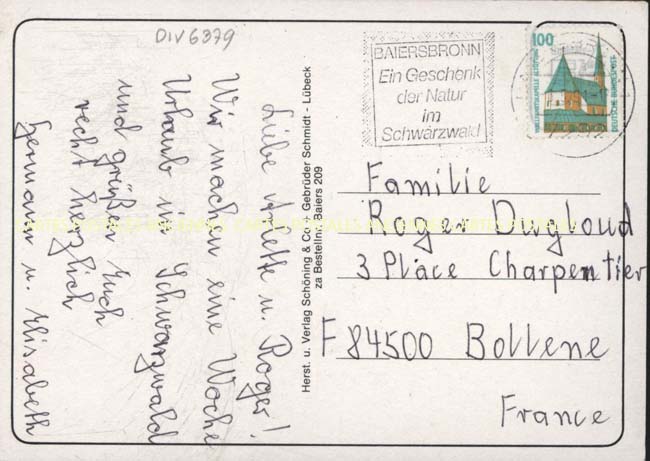 DIV6379
BAIERSBRONN
Ein Geschenk
der Natur
im
Schwarzwald
100
WALLFAHRTSKAPELLE ALTÖTTING
DEUTSCHE BUNDESPOST
Liebe Arlette u. Roger!
Wir machen eine Woche
Urlaub im Schwarzwald
und grüßen Euch
recht herzlich
Hermann u. Elisabeth
Herst. u. Verlag Schöning & Co + Gebrüder Schmidt - Lübeck
za Bestelln. Baiers 209
Familie
Roger
3 Place Charpentier
F 84500 Bollene
France